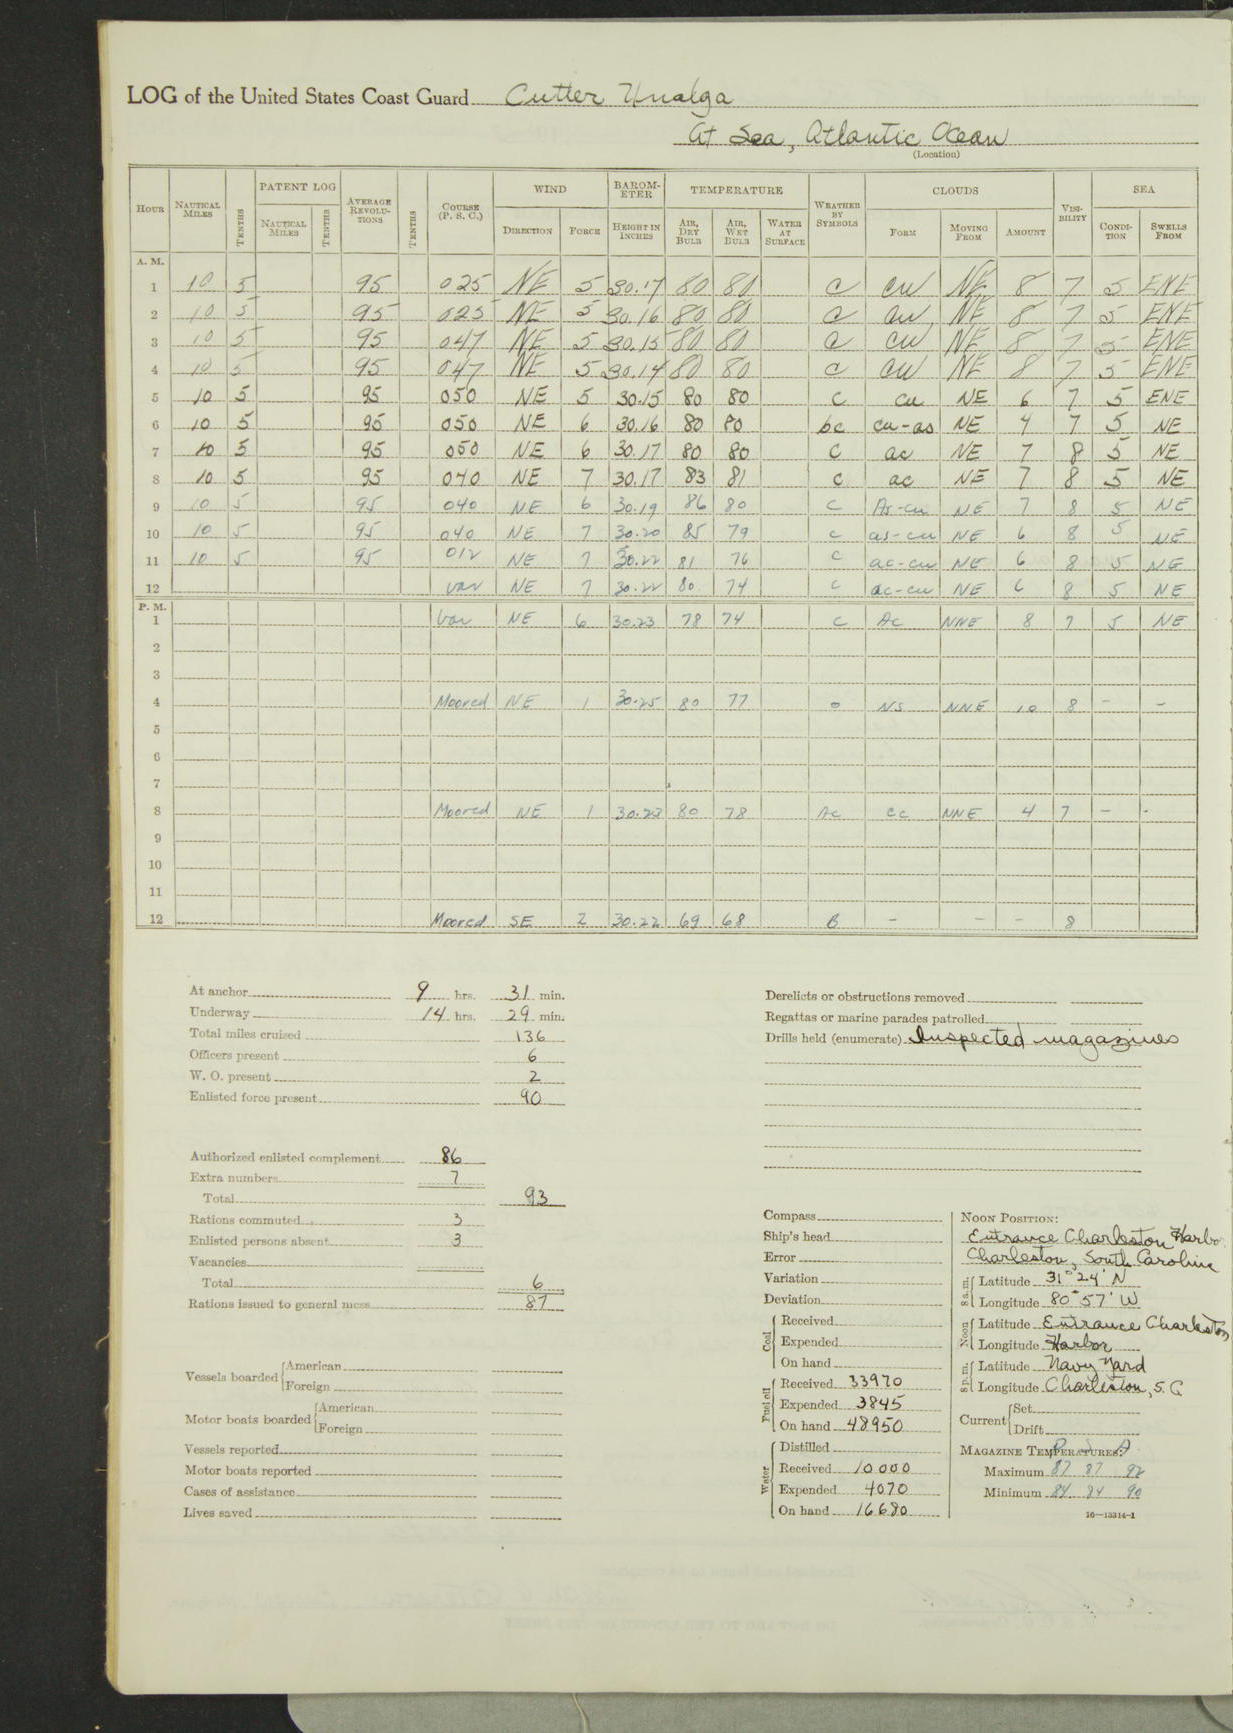 LOG of the United States Coast Guard Cutter Unalga
At Sea, Atlantic Ocean
(Location)
HOUR NAUTICAL MILES TENTHS PATENT LOG NAUTICAL MILES TENTHS AVERAGE REVOLUTIONS TENTHS COURSE (P. S. C.) WIND DIRECTION FORCE BAROMETER HEIGHT IN INCHES TEMPERATURE AIR, DRY BULB AIR, WET BULB WATER AT SURFACE WEATHER BY SYMBOLS CLOUDS FORM MOVING FROM AMOUNT VISIBILITY SEA CONDITION SWELLS FROM
A. M.
1 10 5 95 025 NE 5 30.17 80 80 c cu NE 8 7 5 ENE
2 10 5 95 025 NE 5 30.16 80 80 c cu NE 8 7 5 ENE
3 10 5 95 047 NE 5 30.15 80 80 c cu NE 8 7 5 ENE
4 10 5 95 047 NE 5 30.14 80 80 c cu NE 8 7 5 ENE
5 10 5 95 050 NE 5 30.15 80 80 c cu NE 6 7 5 ENE
6 10 5 95 050 NE 6 30.16 80 80 bc cu-as NE 4 7 5 NE
7 10 5 95 050 NE 6 30.17 80 80 c ac NE 7 8 5 NE
8 10 5 95 040 NE 7 30.17 83 81 c ac NE 7 8 5 NE
9 10 5 95 040 NE 6 30.19 86 80 c As-cu NE 7 8 5 NE
10 10 5 95 040 NE 7 30.20 85 79 c as-cu NE 6 8 5 NE
11 10 5 95 012 NE 7 30.22 81 76 c ac-cu NE 6 8 5 NE
12 var NE 7 30.22 80 74 c ac-cu NE 6 8 5 NE
P. M.
1 Var NE 6 30.23 78 74 c Ac NNE 8 7 5 NE
2
3
4 Moored NE 1 30.25 80 77 o NS NNE 10 8 - -
5
6
7
8 Moored NE 1 30.23 80 78 Ac cc NNE 4 7 - -
9
10
11
12 Moored SE 2 30.22 69 68 B - - - 8
At anchor 9 hrs. 31 min.
Underway 14 hrs. 29 min.
Total miles cruised 136
Officers present 6
W. O. present 2
Enlisted force present 90
Authorized enlisted complement 86
Extra numbers 7
Total 93
Rations commuted 3
Enlisted persons absent 3
Vacancies
Total 6
Rations issued to general mess 87
Vessels boarded American
Foreign
Motor boats boarded American
Foreign
Vessels reported
Motor boats reported
Cases of assistance
Lives saved
Derelicts or obstructions removed
Regattas or marine parades patrolled
Drills held (enumerate) Inspected magazines
Compass
Ship's head
Error
Variation
Deviation
Coal Received
Expended
On hand
Fuel oil Received 33970
Expended 3845
On hand 48950
Water Distilled
Received 10000
Expended 4070
On hand 16680
NOON POSITION:
Entrance Charleston Harbor
Charleston, South Carolina
8 a. m. Latitude 31° 24' N
Longitude 80° 57' W
Noon Latitude Entrance Charleston
Longitude Harbor
8 p. m. Latitude Navy Yard
Longitude Charleston, S. C.
Current Set
Drift
MAGAZINE TEMPERATURES:
Maximum 87 87 92
Minimum 84 84 90
16—13314-1